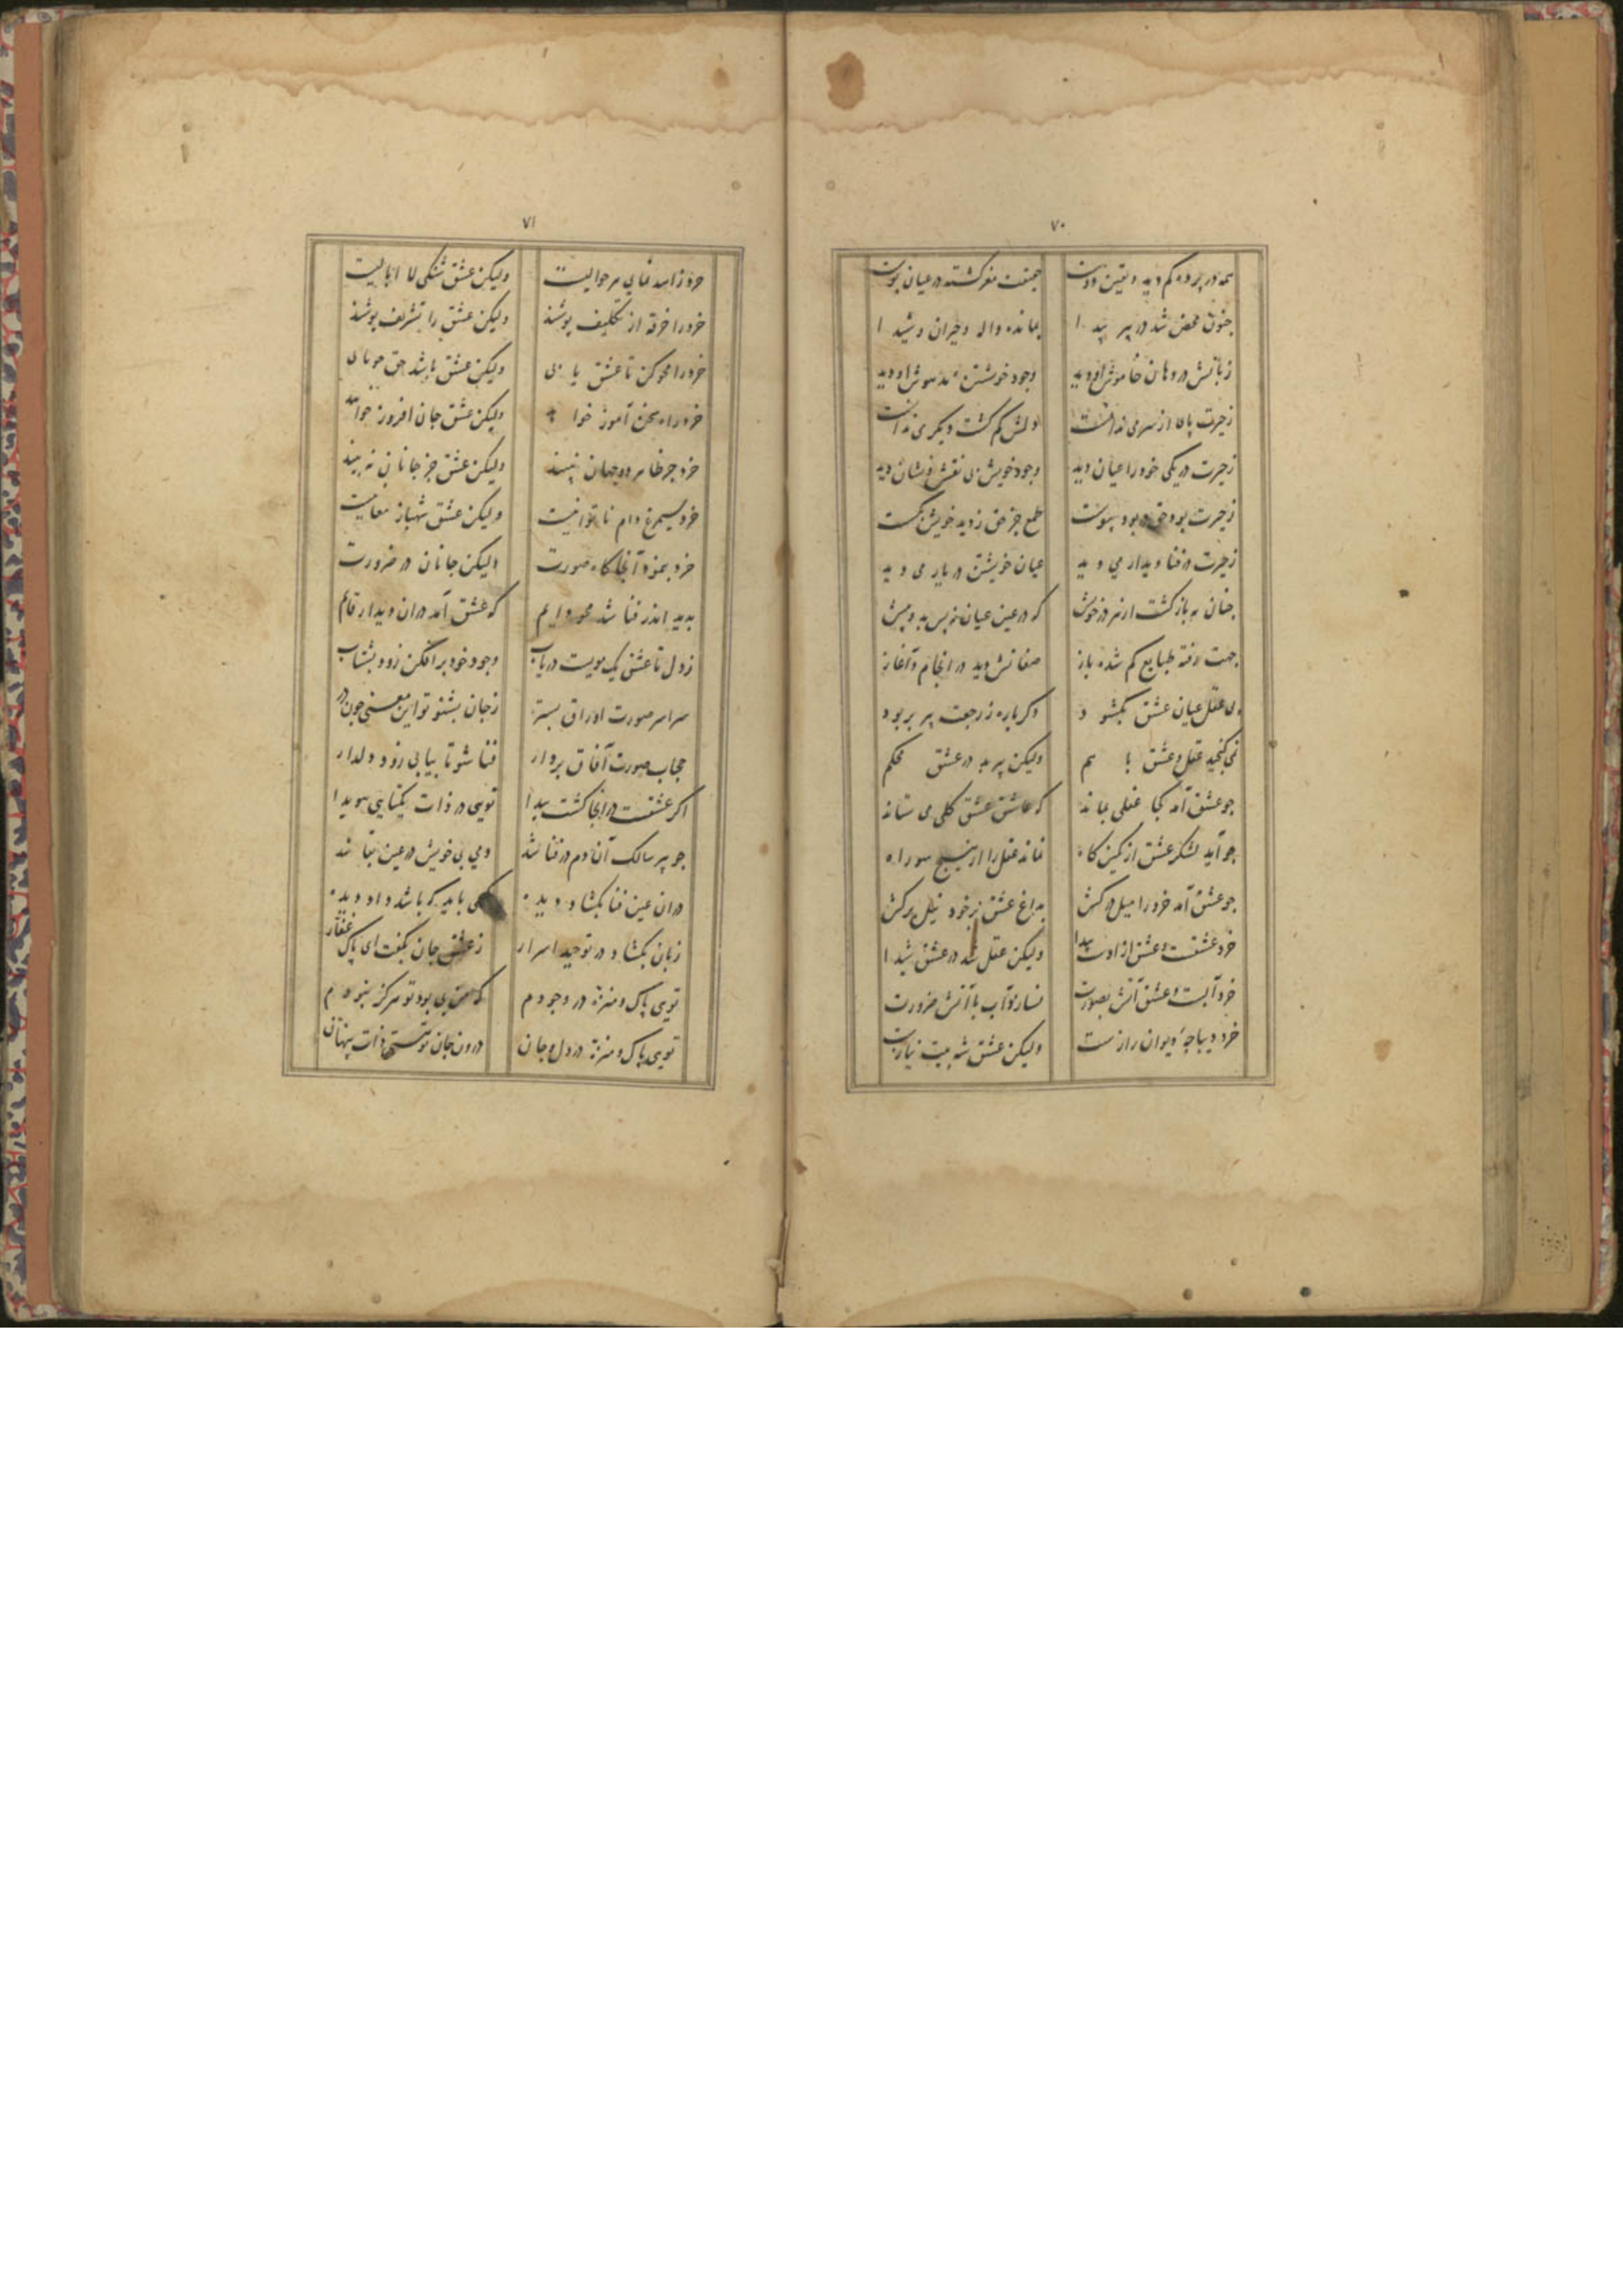 ۷۰
همه در پرده گم دید و یقین دوست حقیقت مغز گشته در عیان پوست
جنون محض شد در پیر پیدا بمانده واله و حیران و شیدا
زبانش در دهان خاموش او دید وجود خویشتن مدهوش او دید
ز حیرت پای از سر می ندانست دلش گم گشت دیگر می ندانست
ز حیرت در یکی خود را عیان دید وجود خویش بی نقش و نشان دید
ز حیرت بود حق بود پیوست طمع جز حق ز دید خویش بگسست
ز حیرت در فنا دیدار می دید عیان خویشتن در یار می دید
چنان به باز گشت از خویش که در عین عیان پس بد و پیش
جهت رفته طبایع گم شده باز صفاتش دید در انجام و آغاز
عقل عیان عشق بگشود دگرباره ز رجعت پیر بربود
نمی گنجید عقل و عشق با هم ولیکن پیر بد در عشق محکم
جو عشق آمد کجا عقلی بماند که عاشق عشق کلی می ستاند
جو آید لشکر عشق از کمین گاه نماند عقل را از هیچ سو راه
جو عشق آمد خرد را میل درکش بداغ عشق خود نیل برکش
خرد عشقست و عشق از اوست پیدا ولیکن عقل شد در عشق شیدا
خرد آبست و عشق آتش بصورت نسازد آب با آتش ضرورت
خرد دیباچه دیوان رازست ولیکن عشق شه بیت نیازست
۷۱
خرد زاهد نمای هر حوالیست ولیکن عشق شنگی لا ابالیست
خرد را خرقه از تکلیف پوشند ولیکن عشق را تشریف پوشند
خرد را محو کن تا عشق یابی ولیکن عشق باشد حق
خرد راه سخن آموز خواهد ولیکن عشق جان افروز خواهد
خرد جز ظاهر دو جهان نبیند ولیکن عشق جز جانان نه بیند
خرد سیمرغ دام ناتوانیست ولیکن عشق شهباز معانیست
خرد بنمود آنجا گاه صورت ولیکن جانان در ضرورت
بدید اندر فنا شد محو دایم که عشق آمد در آن دیدار قائم
ز دل تا عشق یک مویست دریاب وجود خود برافکن زود بشتاب
سراسر صورت اوراق بستر ز جان بشنو تو این معنی چون در
حجاب صورت آفاق بردار فنا شو تا بیابی زود دلدار
اگر عشقست در اینجا گشت پیدا تویی در ذات یکتایی هویدا
جو پیر سالک آن دم در فنا شد دمی بی خویش در عین بقا شد
در آن عین فنا بگشاد دیده کسی باید که باشد داد دیده
زبان بگشاد در توحید اسرار ز عشق جان بگفت ای پاک غفار
تویی پاک و منزه در وجودم که من بی بود تو هرگز نبودم
تویی پاک و منزه در دل و جان درون جان تو هستی ذات پنهان